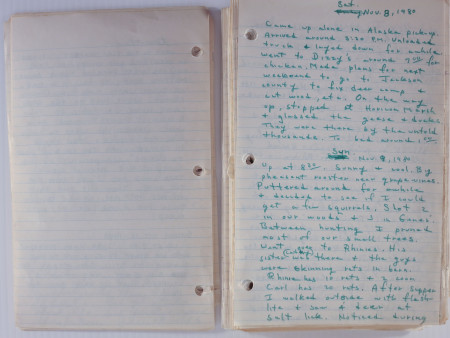 Sat.
Nov. 8, 1980
Came up alone in Alaska pickup.
Arrived around 3:30 P.M. Unloaded
truck & layed down for awhile
went to Dizzy's around 7 for
chicken. Made plans for next
weekend to go to Jackson
county to fix deer camp &
cut wood, etc. On the way
up, stopped at Horicon Marsh
& glassed the geese & ducks
They were there by the untold
thousands. To bed around
Sun.
Nov. 9, 1980
Up at 8 Sunny & cool.
pheasant rooster near grape vines.
Puttered around for awhile
& decided to see if I could
get a few squirrels. Shot 2
in our woods & 2 in
Between hunting I pruned
most of our small trees.
Went over to Rhinies. His
sister was there & the guys
were skinning rats in barn.
Rhinie has 12 rats & 2 coon
Carl has 20 rats. After supper
I walked outside with flash
lite & saw a deer at
salt lick. Noticed during